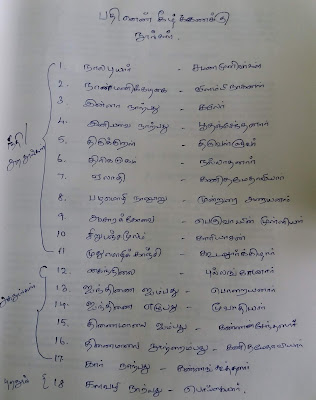 பதினெண் கீழ்க்கணக்கு
நூல்கள்.
1. நாலடியார் - சமண முனிவர்கள்
2. நான்மணிக்கடிகை - விளம்பி நாகனார்
3. இன்னா நாற்பது - கபிலர்
4. இனியவை நாற்பது - பூதஞ்சேந்தனார்
5. திருக்குறள் - திருவள்ளுவர்
6. திரிகடுகம் - நல்லாதனார்
7. ஏலாதி - கணிதமேதாவியார்
8. பழமொழி நானூறு - முன்றுறை அரையனார்
9. ஆசாரக்கோவை - பெருவாயின் முள்ளியார்
10. சிறுபஞ்சமூலம் - காரியாசான்
11. முதுமொழிக்காஞ்சி - கூடலூர்க்கிழார்
12. கைந்நிலை - புல்லங்காடனார்
13. ஐந்திணை ஐம்பது - பொறையனார்
14. ஐந்திணை எழுபது - மூவாதியார்
15. திணைமொழி ஐம்பது - கண்ணன்சேந்தனார்
16. திணைமாலை நூற்றைம்பது - கணிதமேதாவியார்
17. கார் நாற்பது - கண்ணங்கூத்தனார்
18. களவழி நாற்பது - பொய்கையார்.